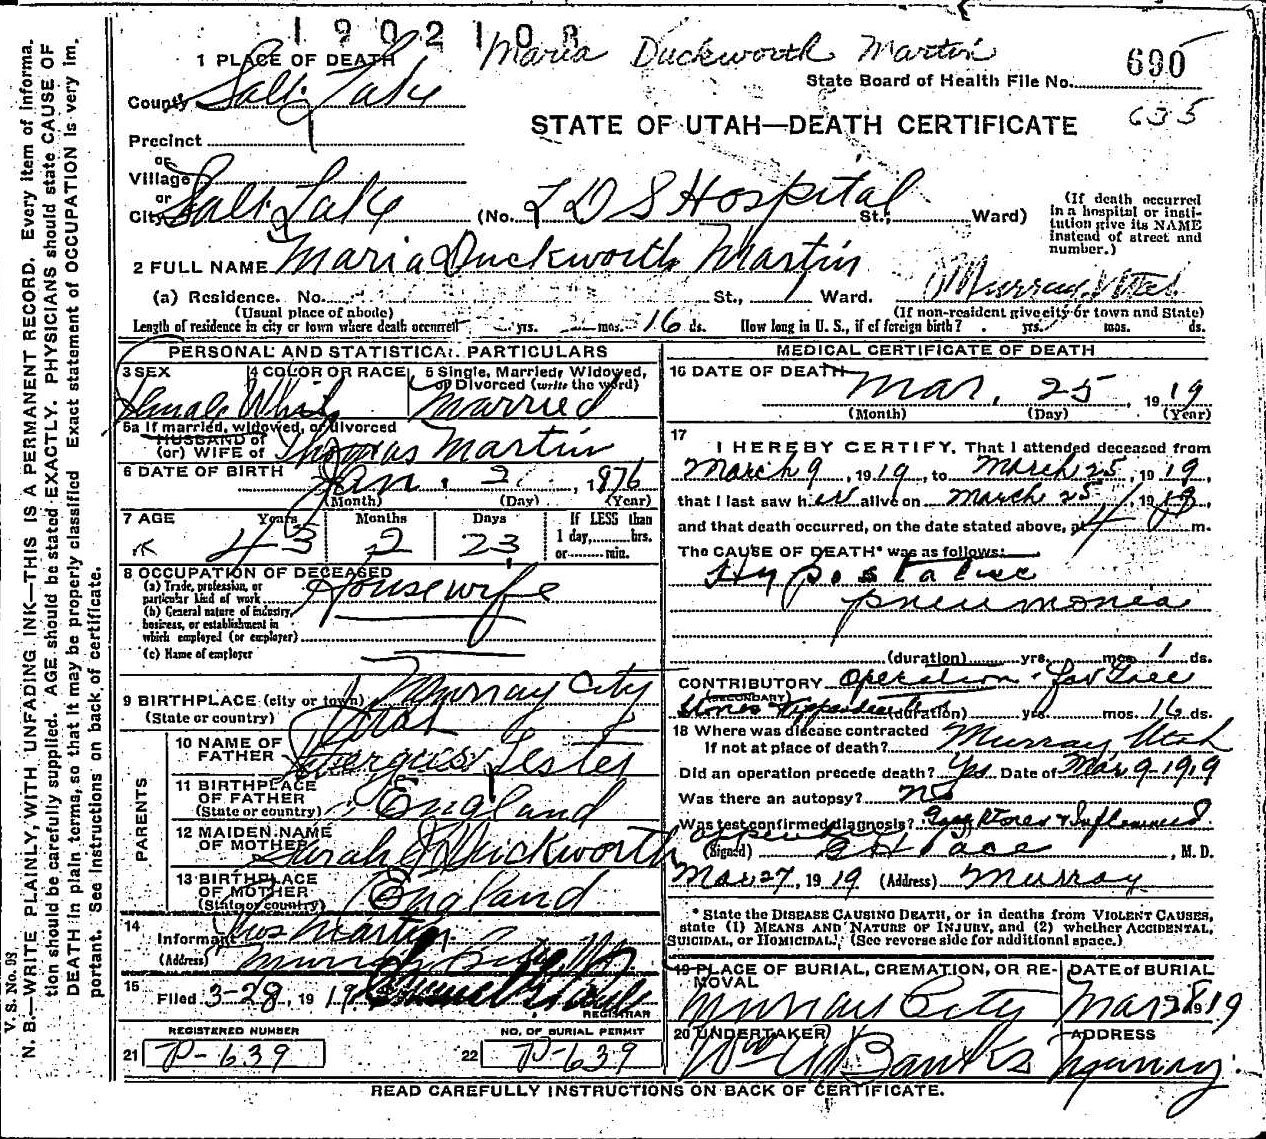 1902108
Maria Duckworth Martin
1 PLACE OF DEATH
690
State Board of Health File No.
County Salt Lake
635
STATE OF UTAH—DEATH CERTIFICATE
Precinct
or
Village
or
City Salt Lake (No. L D S Hospital St.; Ward)
(If death occurred
in a hospital or insti-
tution give its NAME
instead of street and
number.)
2 FULL NAME Maria Duckworth Martin
(a) Residence. No. St., Ward. Murray, Utah
(Usual place of abode) (If non-resident give city or town and State)
Length of residence in city or town where death occurred yrs. mos. 16 ds. How long in U. S., if of foreign birth? yrs. mos. ds.
PERSONAL AND STATISTICAL PARTICULARS
3 SEX Female
4 COLOR OR RACE White
5 Single, Married, Widowed,
or Divorced (write the word)
Married
5a If married, widowed, or divorced
HUSBAND of
(or) WIFE of Thomas Martin
6 DATE OF BIRTH Jan. 2, 1876
(Month) (Day) (Year)
7 AGE Years Months Days If LESS than
1 day, hrs.
or min.
43 2 23
8 OCCUPATION OF DECEASED
(a) Trade, profession, or
particular kind of work Housewife
(b) General nature of industry,
business, or establishment in
which employed (or employer)
(c) Name of employer
9 BIRTHPLACE (city or town) Murray City
(State or country) Utah
PARENTS
10 NAME OF
FATHER Lester
11 BIRTHPLACE
OF FATHER
(State or country) England
12 MAIDEN NAME
OF MOTHER Sarah Duckworth
13 BIRTHPLACE
OF MOTHER
(State or country) England
14
Informant Thos Martin
(Address) Murray City
15
Filed 3-28, 1919
REGISTRAR
REGISTERED NUMBER NO. OF BURIAL PERMIT
21 P-639 22 P-639
MEDICAL CERTIFICATE OF DEATH
16 DATE OF DEATH Mar. 25, 1919
(Month) (Day) (Year)
17
I HEREBY CERTIFY, That I attended deceased from
March 9, 1919, to March 25, 1919,
that I last saw her alive on March 25, 19
and that death occurred, on the date stated above, at m.
The CAUSE OF DEATH* was as follows:
Hypostatic
pneumonia
(duration) yrs. mos. 1 ds.
CONTRIBUTORY Operation for Gall
(SECONDARY)
Stones (duration) yrs. mos. 16 ds.
18 Where was disease contracted
If not at place of death? Murray Utah
Did an operation precede death? Yes Date of Mar 9-1919
Was there an autopsy? No
Was test confirmed diagnosis? Stones & Inflamed
(Signed) , M. D.
Mar 27, 1919 (Address) Murray
*State the DISEASE CAUSING DEATH, or in deaths from VIOLENT CAUSES,
state (1) MEANS AND NATURE OF INJURY, and (2) whether ACCIDENTAL,
SUICIDAL, or HOMICIDAL. (See reverse side for additional space.)
19 PLACE OF BURIAL, CREMATION, OR RE-
MOVAL
Murray City
DATE of BURIAL
Mar 28 1919
20 UNDERTAKER
Wm Banks
ADDRESS
Murray.
READ CAREFULLY INSTRUCTIONS ON BACK OF CERTIFICATE.
V. S. No. 98
N. B.—WRITE PLAINLY, WITH UNFADING INK—THIS IS A PERMANENT RECORD. Every item of informa-
tion should be carefully supplied. AGE should be stated EXACTLY. PHYSICIANS should state CAUSE OF
DEATH in plain terms, so that it may be properly classified. Exact statement of OCCUPATION is very im-
portant. See instructions on back of certificate.